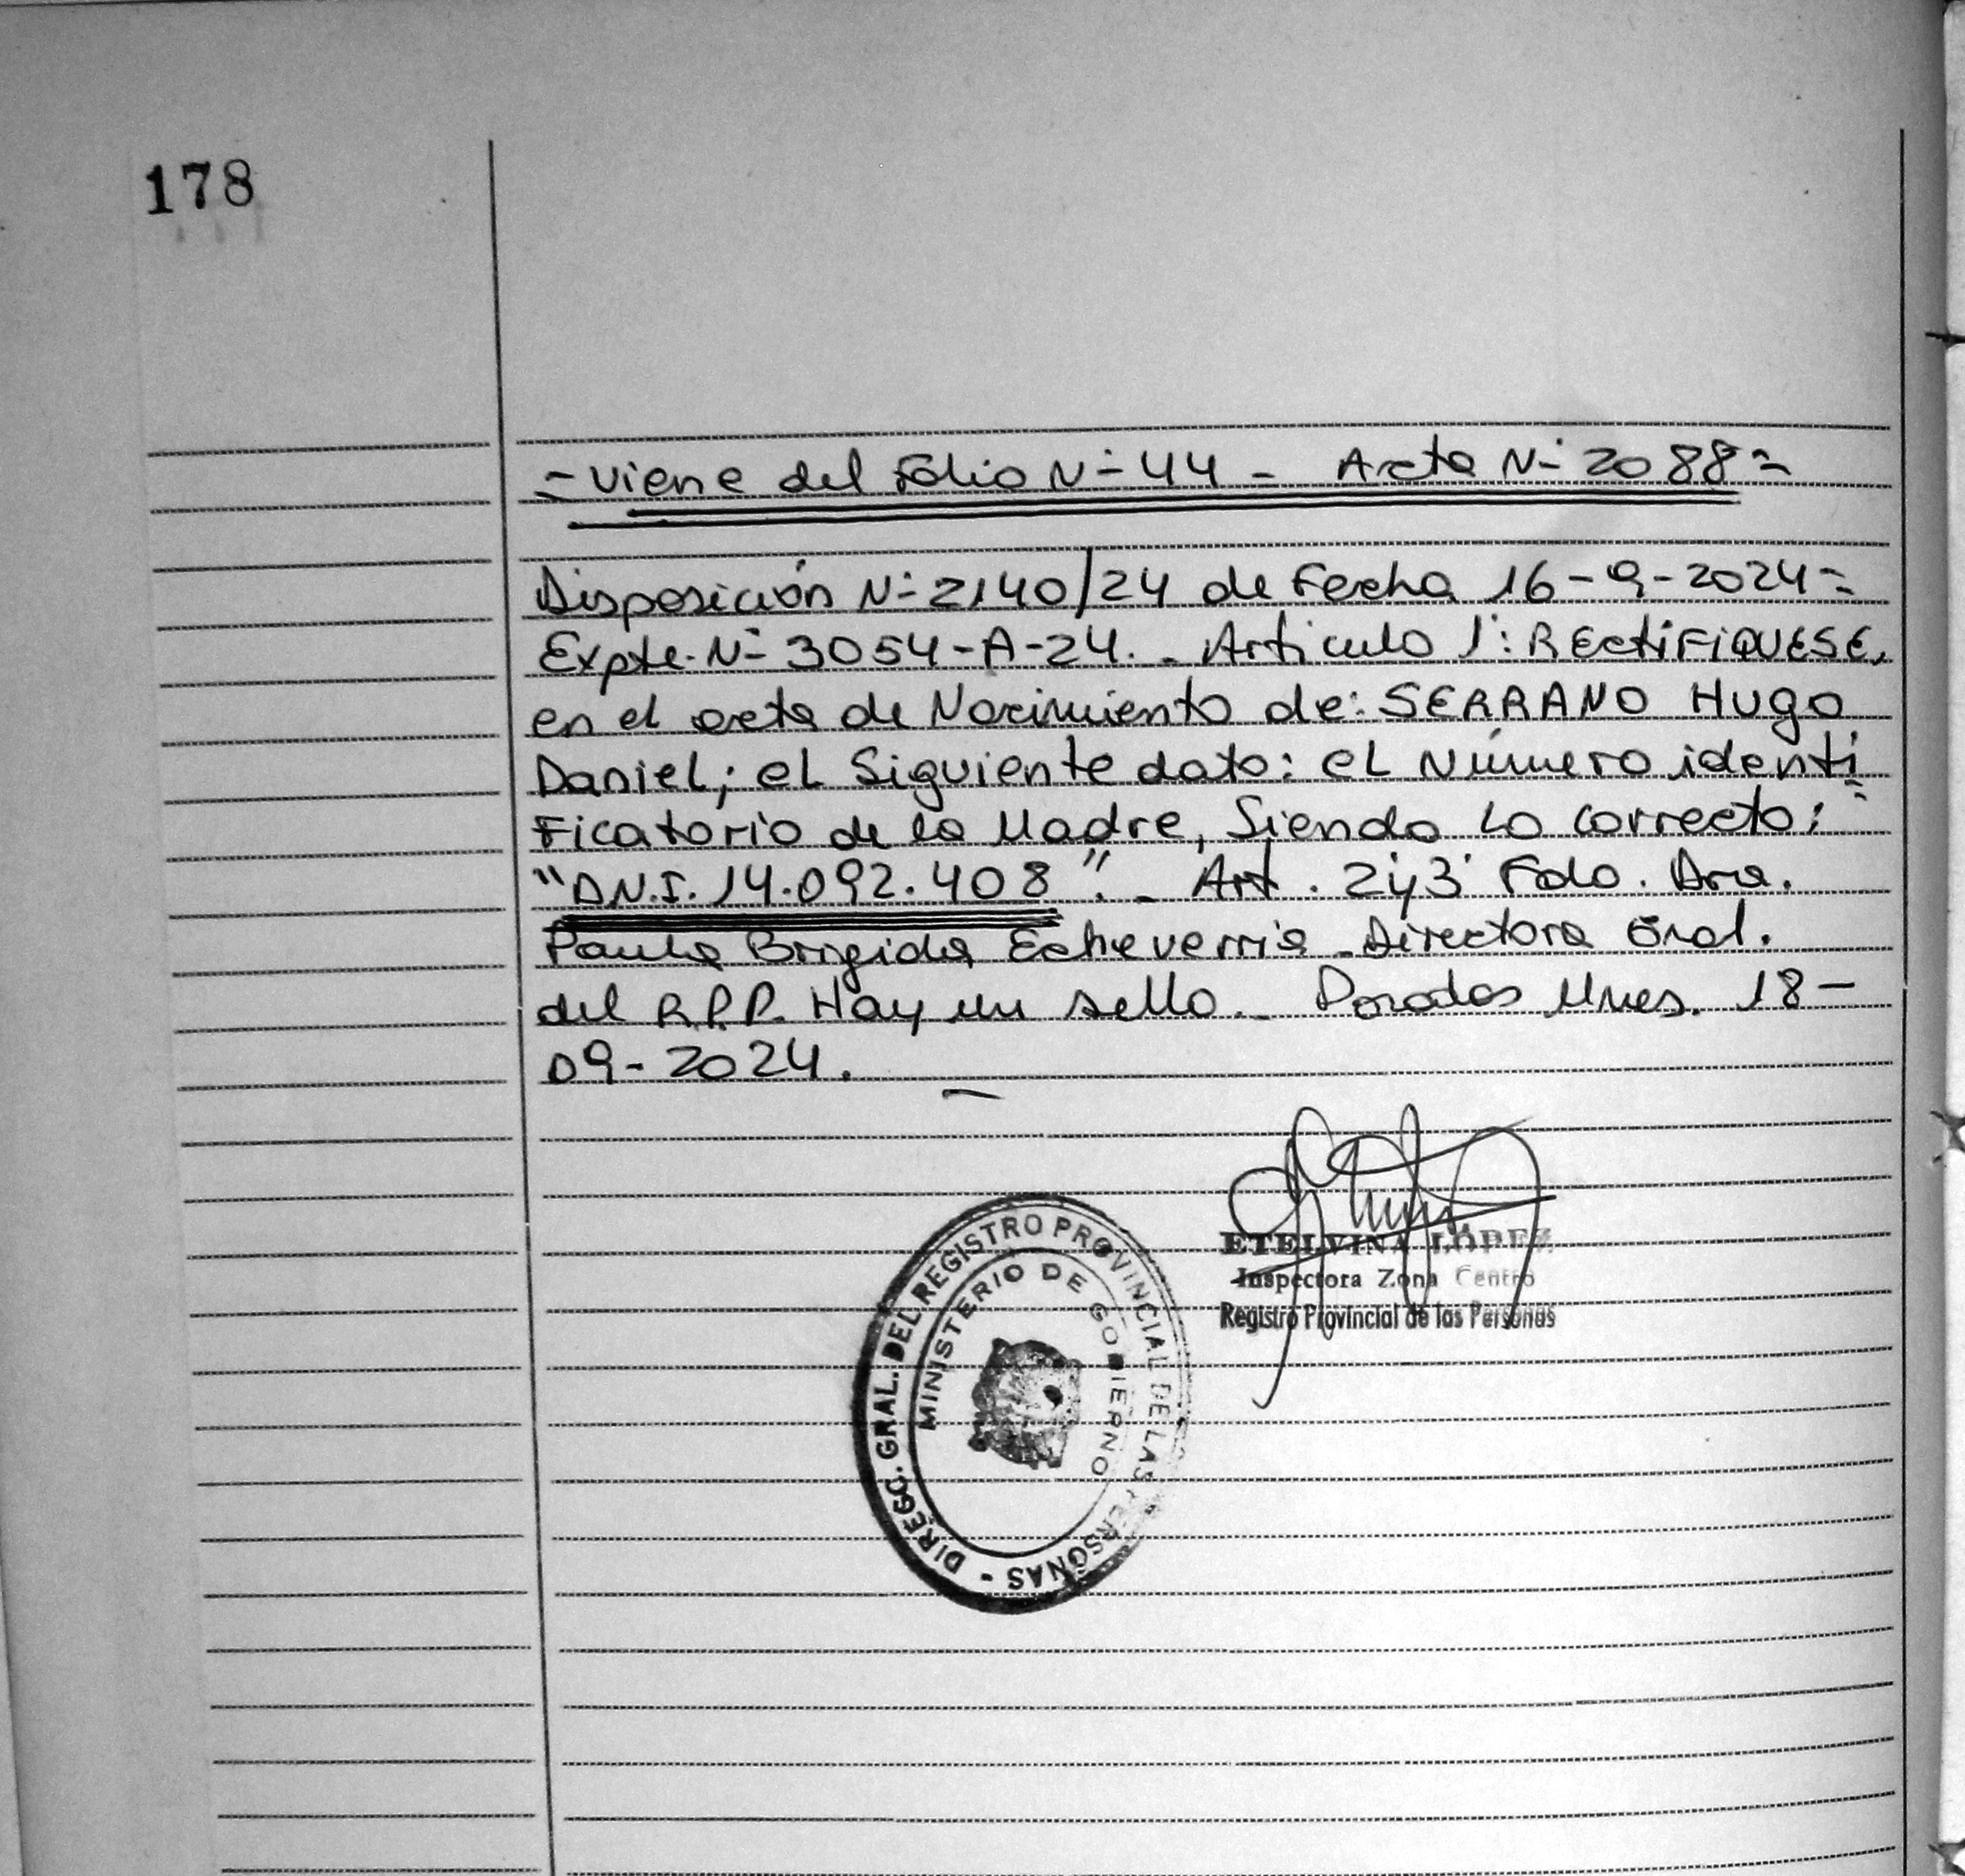 178
= Viene del Folio N= 44 - Acta N= 2088 =
Disposición N= 2140/24 de Fecha 16-9-2024=
Expte. N= 3054-A-24. - Articulo 1°: RECTIFIQUESE,
en el acta de Nacimiento de: SERRANO Hugo
Daniel; el Siguiente dato: el Número identi
Ficatorio de la Madre, Siendo Lo correcto:
"D.N.I. 14.092.408". - Art. 2y3 Fdo. Dra.
Paula Brigida Echeverria - Directora Gral.
del R.P.P. Hay un sello. - Posadas Mnes. 18-
09-2024.
ETELVINA LÓPEZ
Inspectora Zona Centro
Registro Provincial de las Personas
DIREGC. GRAL. DEL REGISTRO PROVINCIAL DE LAS PERSONAS -
MINISTERIO DE GOBIERNO